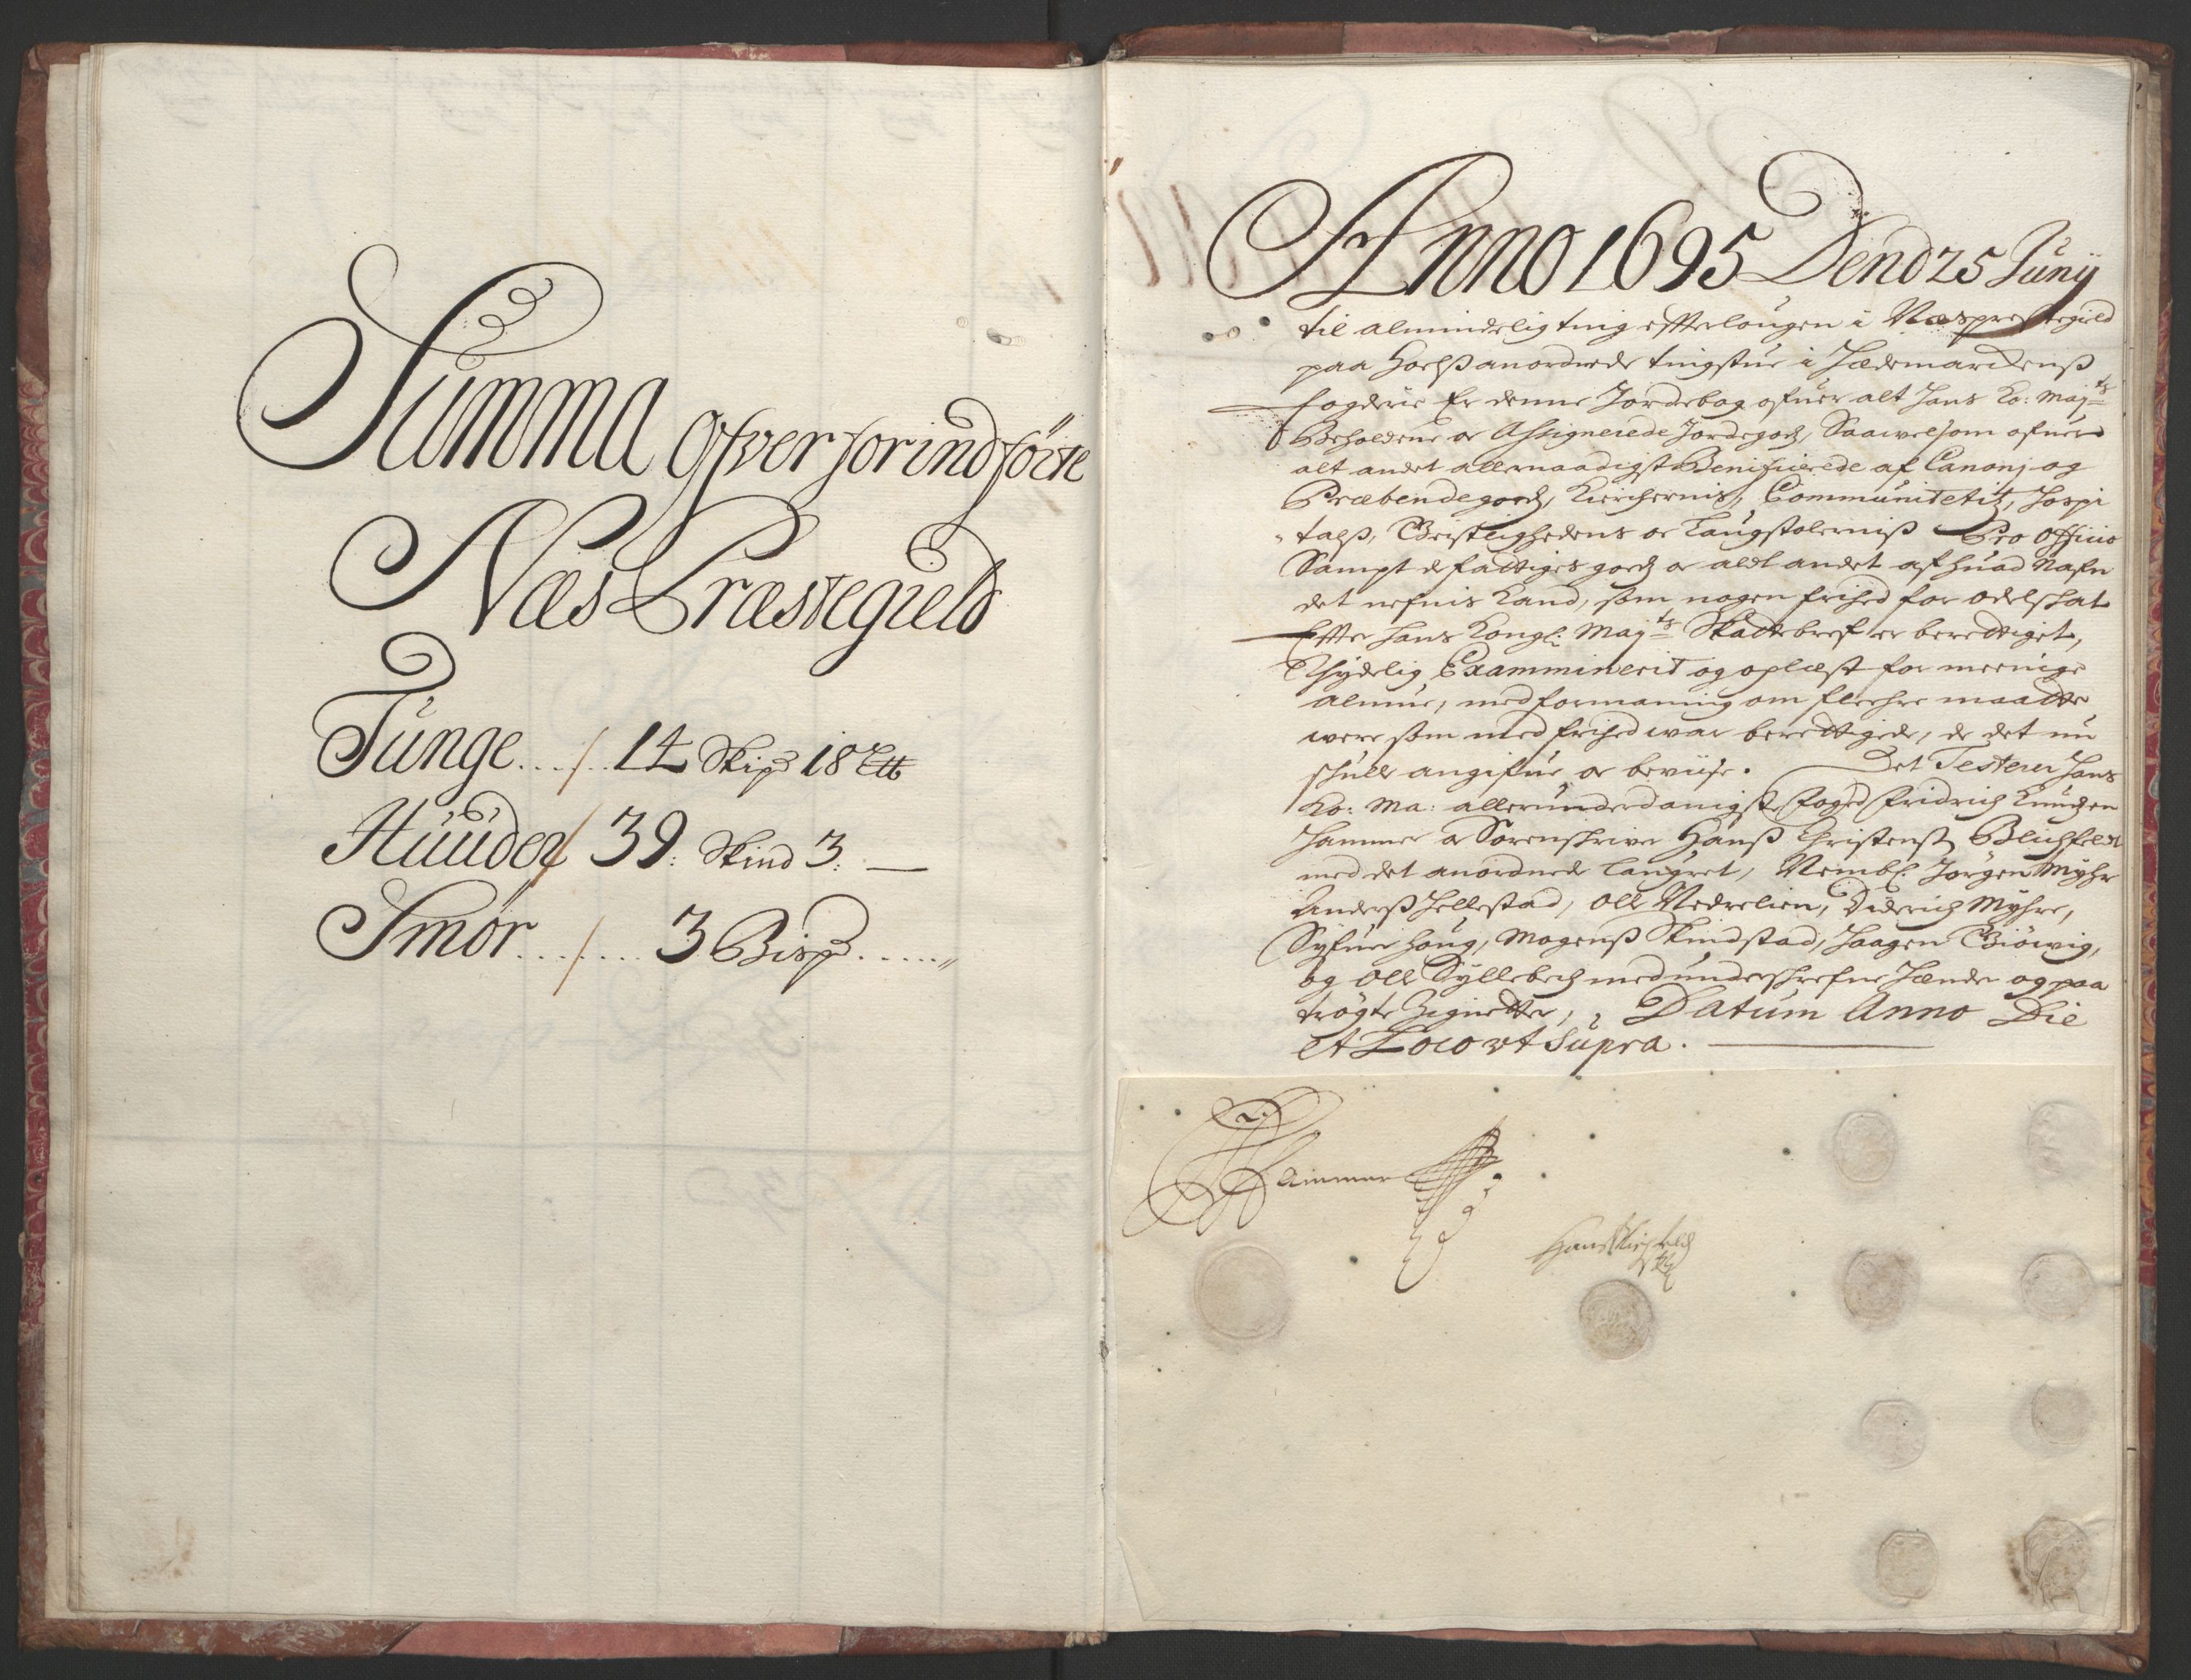 Summa Ofver forindførte
Næs Præstegield
Tunge..../... 14 Skip℔ 18 L℔
Huuder / 39: Skind 3: —
Smör...../.... 3 Bisp℔.....〃
Anno 1695 Dend 25 Junij
til almindelig ting effter lougen i Næs prestegield
paa Hoelß anordnede tingstue i Hædemarckens
fogderie Er denne Jordebog ofuer alt Hans Ko: Majts
Beholdene oc Assignerede Jordegodz, Saawelsom ofuer
alt andet allernaadigst Benificierede af Canonj og
Præbendegodz, Kirchernis, Communitetz, Hospi
talß, Geistlighedens oc Laugstolerniß Pro Officio
Sampt de fattiges godz oc aldt andet af huad Nafn
det nefnis Kand, som nogen frihed for odelschat
Effter Hans Kongl: Majts Skattebref er berettiget,
Thydelig Examminerit og oplæst for meenige
almue, med formaning om fleehre maatte
were som med frihed war berettigede, de det nu
schulle angifue oc beviise. Det Testerer Hans
Ko: Ma: allerunderdanigste foged Fridrich Knudzen
Hammer oc Sorenskriver Hanß Christenß. Blichfeldt
med det anordnede Laugret, Nembl. Jørgen Myhr
Anderß Hellestad, Olle Nedrelien, Diderich Myhre,
Syfuer Houg, Mogenß Skindstad, Haagen Giöwig,
og Olle Syllebech med underschrefne Hænder og paa
trögte Zignetter, Datum Anno Die
et Loco ut Supra.
Hammer
Hans Blichfeld